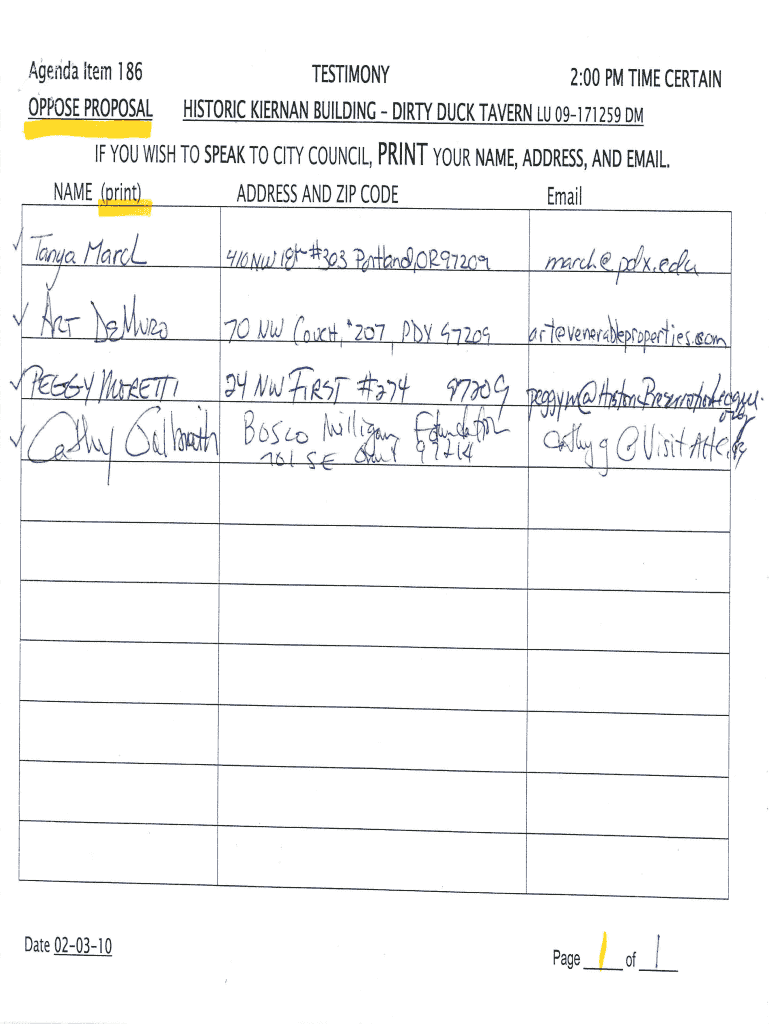 Agenda Item 186 TESTIMONY 2:00 PM TIME CERTAIN
OPPOSE PROPOSAL HISTORIC KIERNAN BUILDING – DIRTY DUCK TAVERN LU 09-171259 DM
IF YOU WISH TO SPEAK TO CITY COUNCIL, PRINT YOUR NAME, ADDRESS, AND EMAIL.
NAME (print) ADDRESS AND ZIP CODE Email
✓ Tanya March 410 NW 18th #303 Portland, OR 97209 march@pdx.edu
✓ ART DEMURO 70 NW Couch, #207, PDX 97209 art@venerableproperties.com
✓ PEGGY MORETTI 24 NW FIRST #274 97209 peggym@HistoricPreservationLeague.
org
✓ Cathy Galbraith Bosco Milligan Foundation cathyg@Visitahc.org
701 SE Grand 97214
Date 02-03-10
Page 1 of 1